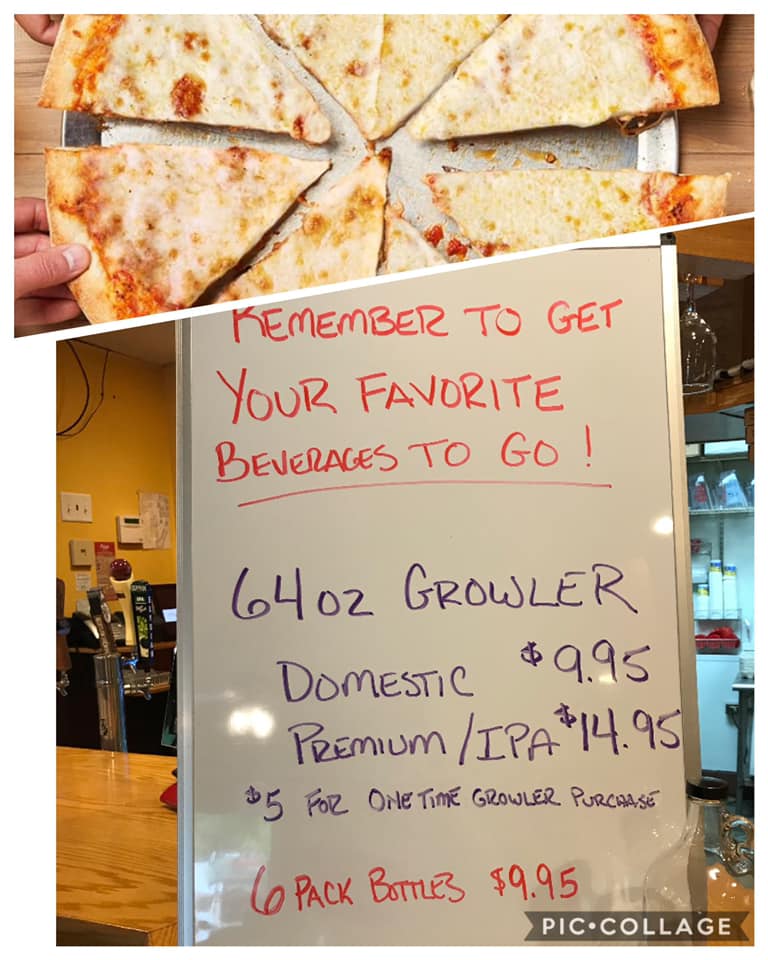 REMEMBER TO GET
YOUR FAVORITE
BEVERAGES TO GO!
64 OZ GROWLER
DOMESTIC $9.95
PREMIUM/IPA $14.95
$5 FOR ONE TIME GROWLER PURCHASE
6 PACK BOTTLES $9.95
PIC•COLLAGE